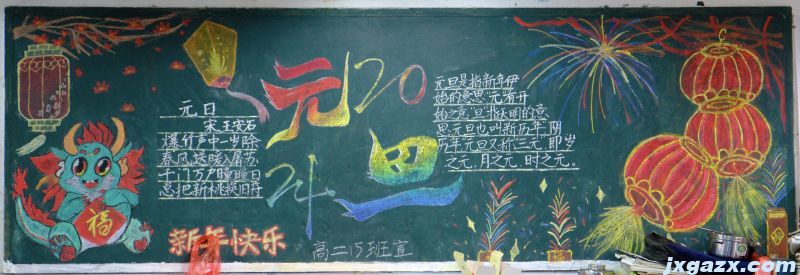 元日
宋 王安石
爆竹声中一岁除
春风送暖入屠苏
千门万户曈曈日
总把新桃换旧符
福
新年快乐
元旦
20
24
元旦是指新年伊
始的意思 元有开
始之意 旦
思 元旦也叫新历年 阴
历年 元旦又称三元 即岁
之元,月之元 时之元。
高二15班宣
jxgazx.com